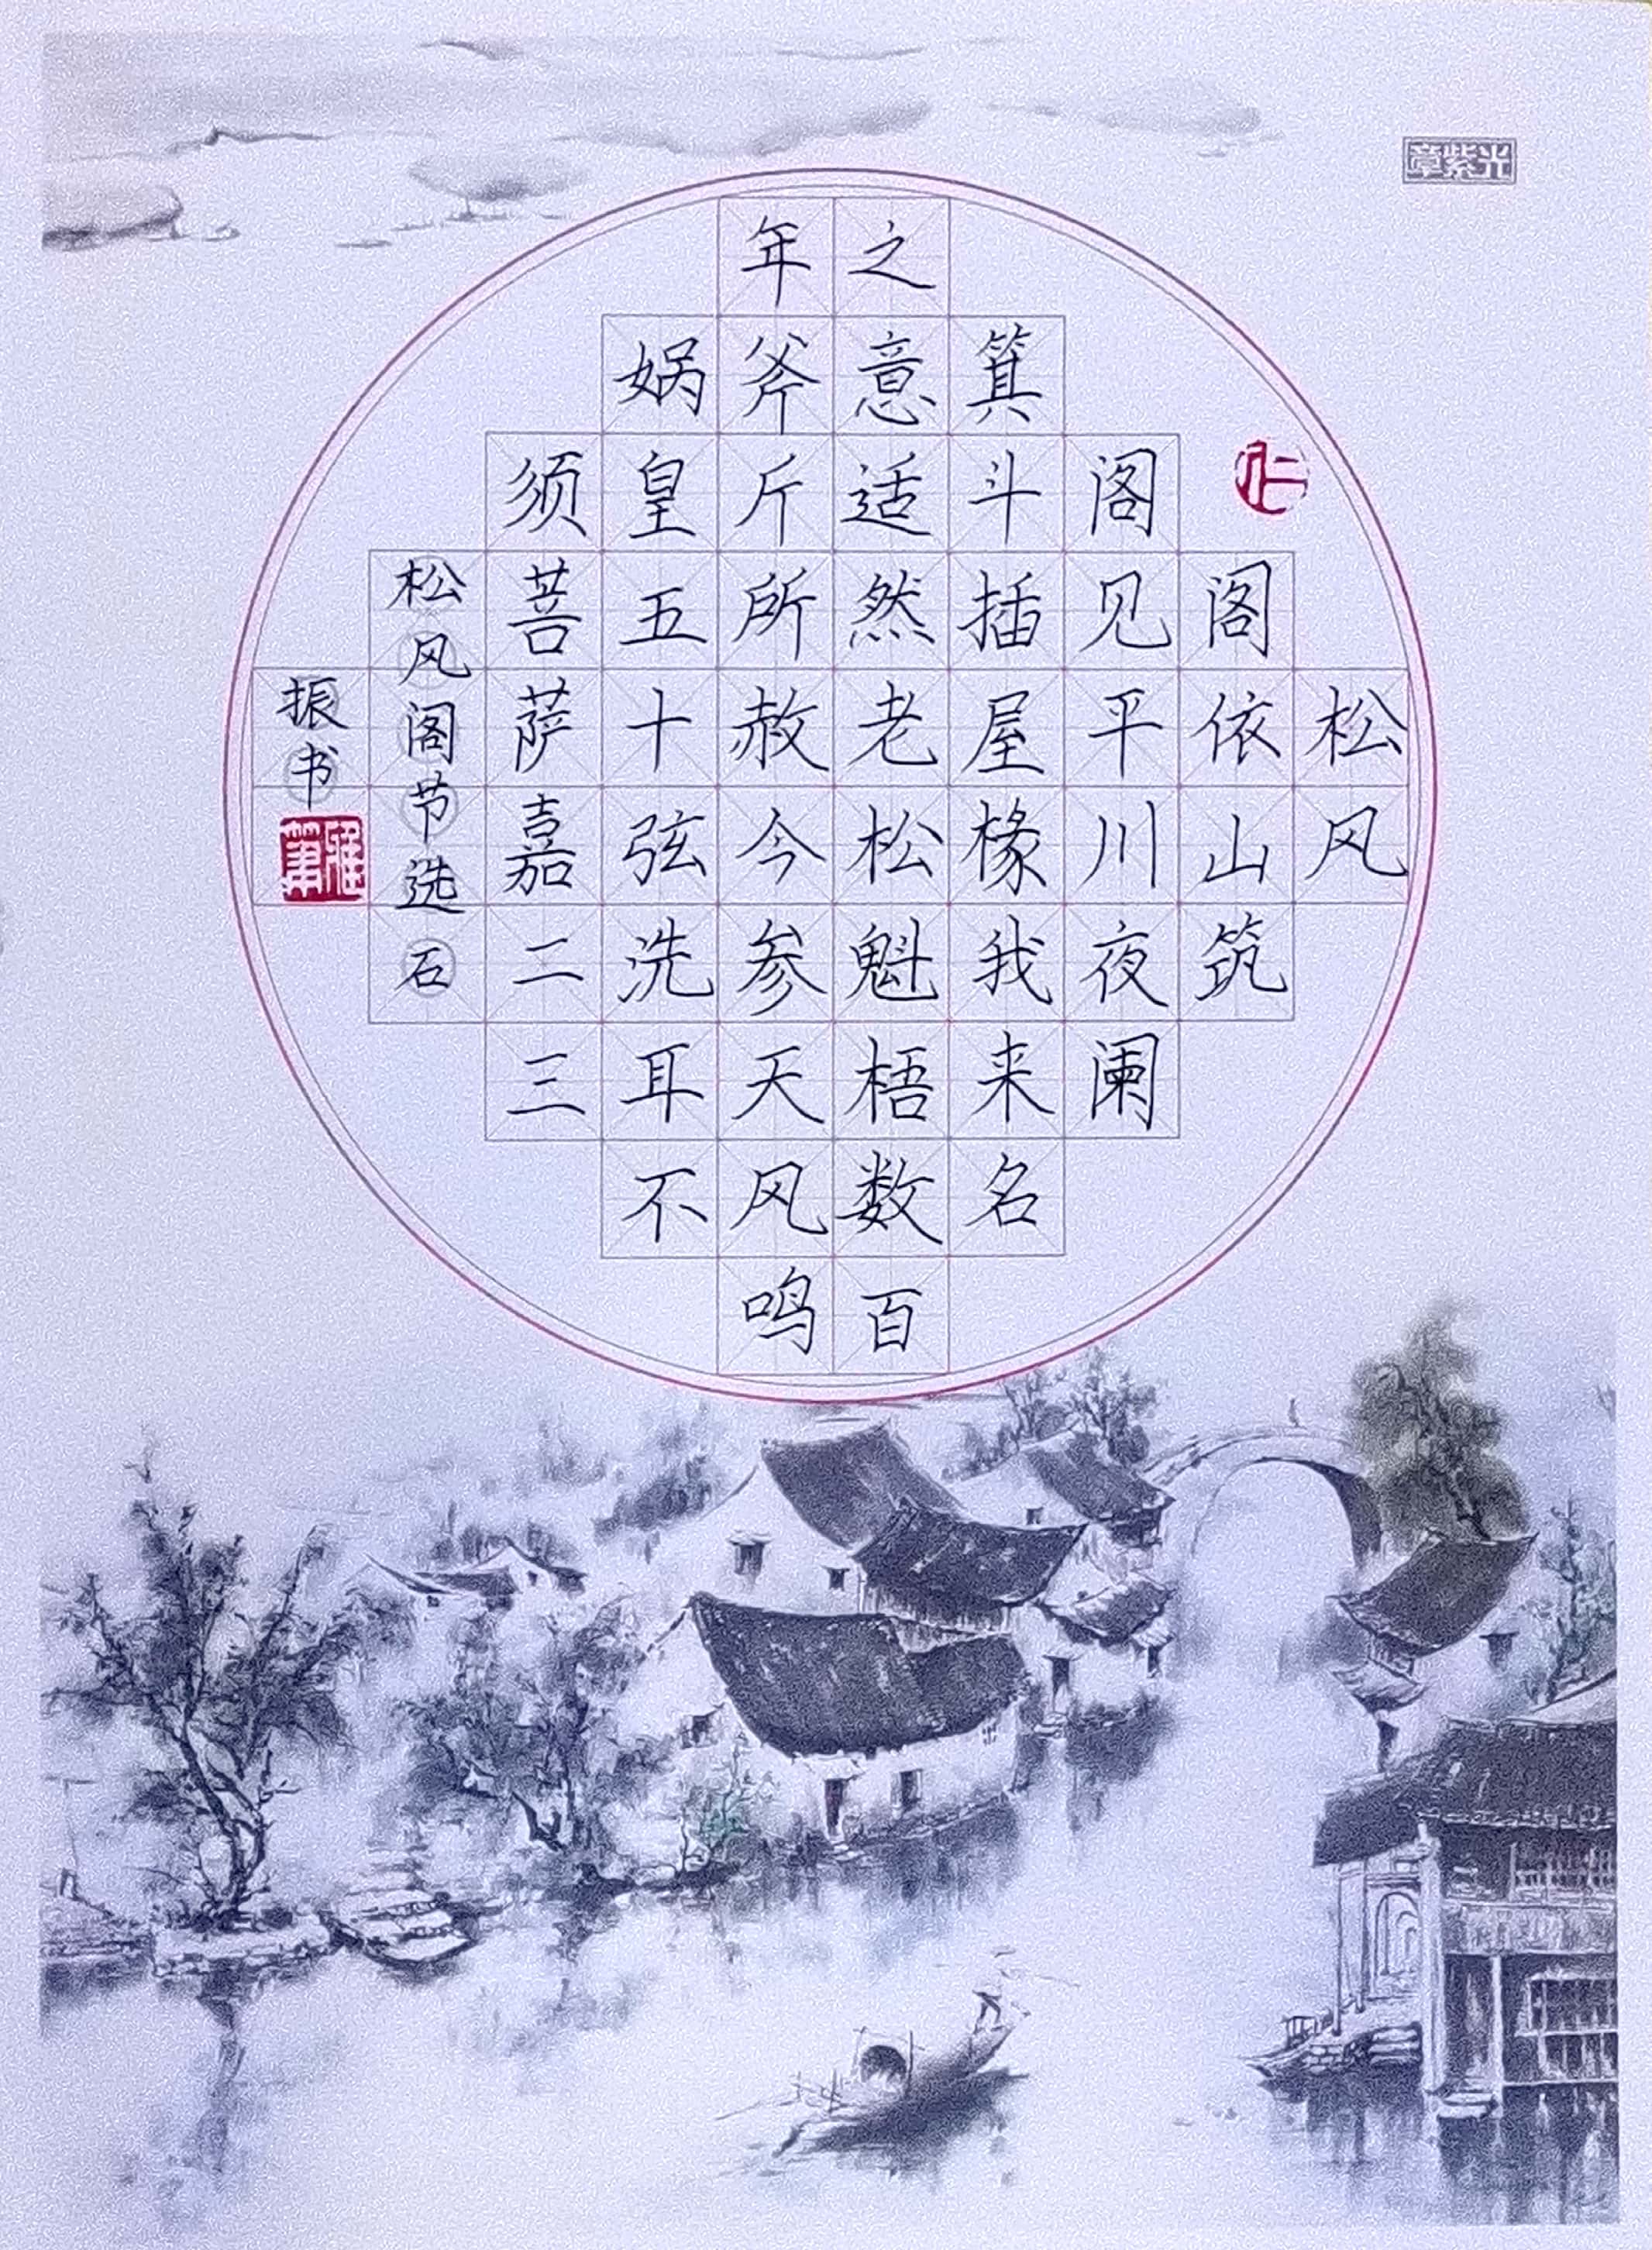 章紫光
松风
阁依山筑
阁见平川夜阑
箕斗插屋椽我来名
之意适然老松魁梧数百
年斧斤所赦今参天风鸣
娲皇五十弦洗耳不
须菩萨嘉二三
松风阁节选石
振书